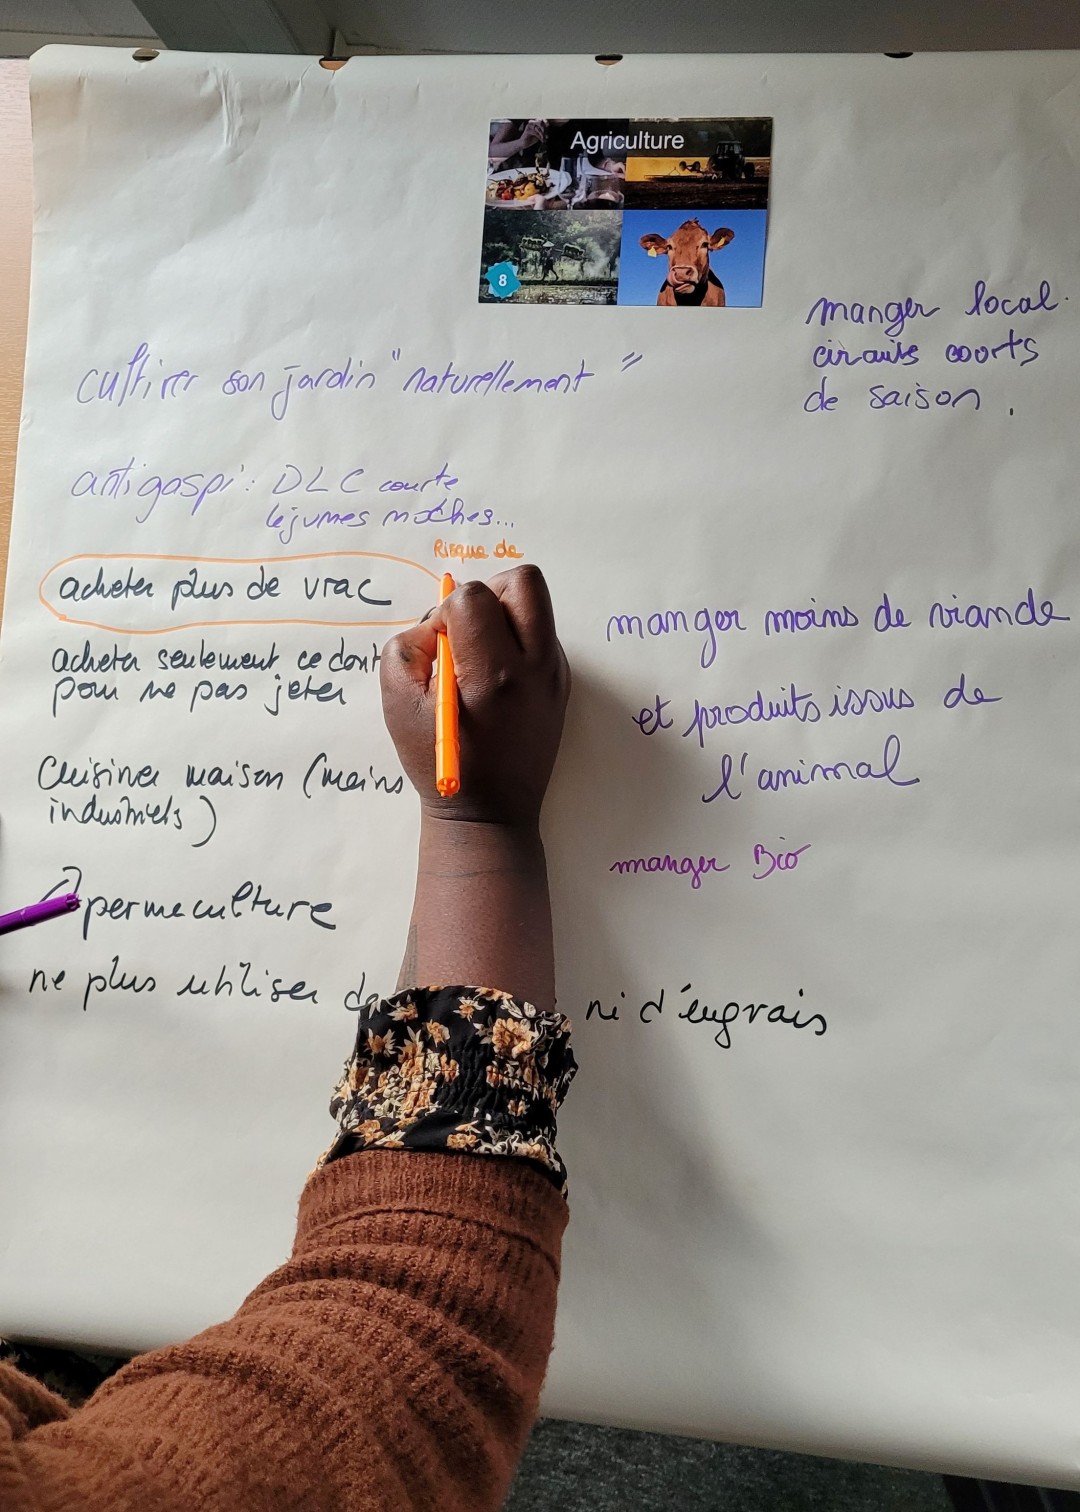 Agriculture
8
manger local.
circuits courts
de saison.
cultiver son jardin "naturellement"
antigaspi: DLC courte
légumes môches...
Risque de
acheter plus de vrac
acheter seulement ce dont
pour ne pas jeter
manger moins de viande
et produits issus de
l'animal
Cuisiner maison (moins
industriels)
manger Bio
permaculture
ne plus utiliser
ni d'engrais